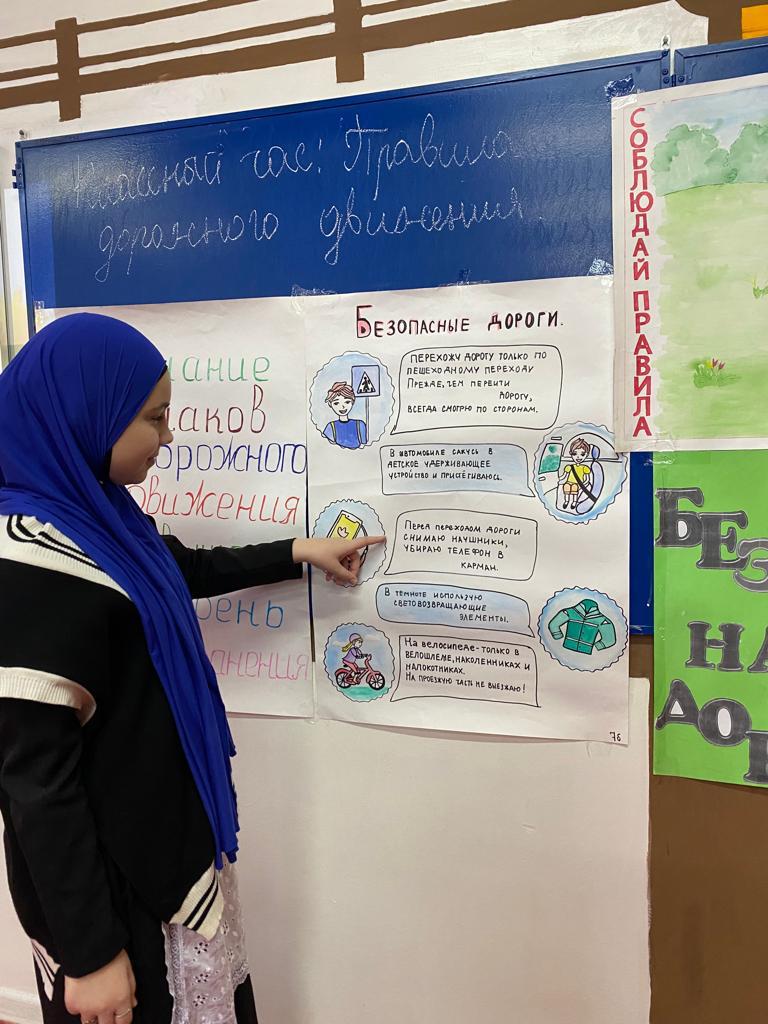 Классный час: Правила
дорожного движения.
БЕЗОПАСНЫЕ ДОРОГИ.
ПЕРЕХОЖУ ДОРОГУ ТОЛЬКО ПО
ПЕШЕХОДНОМУ ПЕРЕХОДУ
ПРЕЖДЕ, ЧЕМ ПЕРЕЙТИ
ДОРОГУ,
ВСЕГДА СМОТРЮ ПО СТОРОНАМ.
В АВТОМОБИЛЕ САЖУСЬ В
ДЕТСКОЕ УДЕРЖИВАЮЩЕЕ
УСТРОЙСТВО И ПРИСТЁГИВАЮСЬ.
ПЕРЕД ПЕРЕХОДОМ ДОРОГИ
СНИМАЮ НАУШНИКИ,
УБИРАЮ ТЕЛЕФОН В
КАРМАН.
В ТЕМНОТЕ ИСПОЛЬЗУЮ
СВЕТОВОЗВРАЩАЮЩИЕ
ЭЛЕМЕНТЫ.
НА ВЕЛОСИПЕДЕ-ТОЛЬКО В
ВЕЛОШЛЕМЕ, НАКОЛЕННИКАХ И
НАЛОКОТНИКАХ.
НА ПРОЕЗЖУЮ ЧАСТЬ НЕ ВЫЕЗЖАЮ!
7б
орожного
движения
СОБЛЮДАЙ ПРАВИЛА
БЕЗ
НА
ДОР